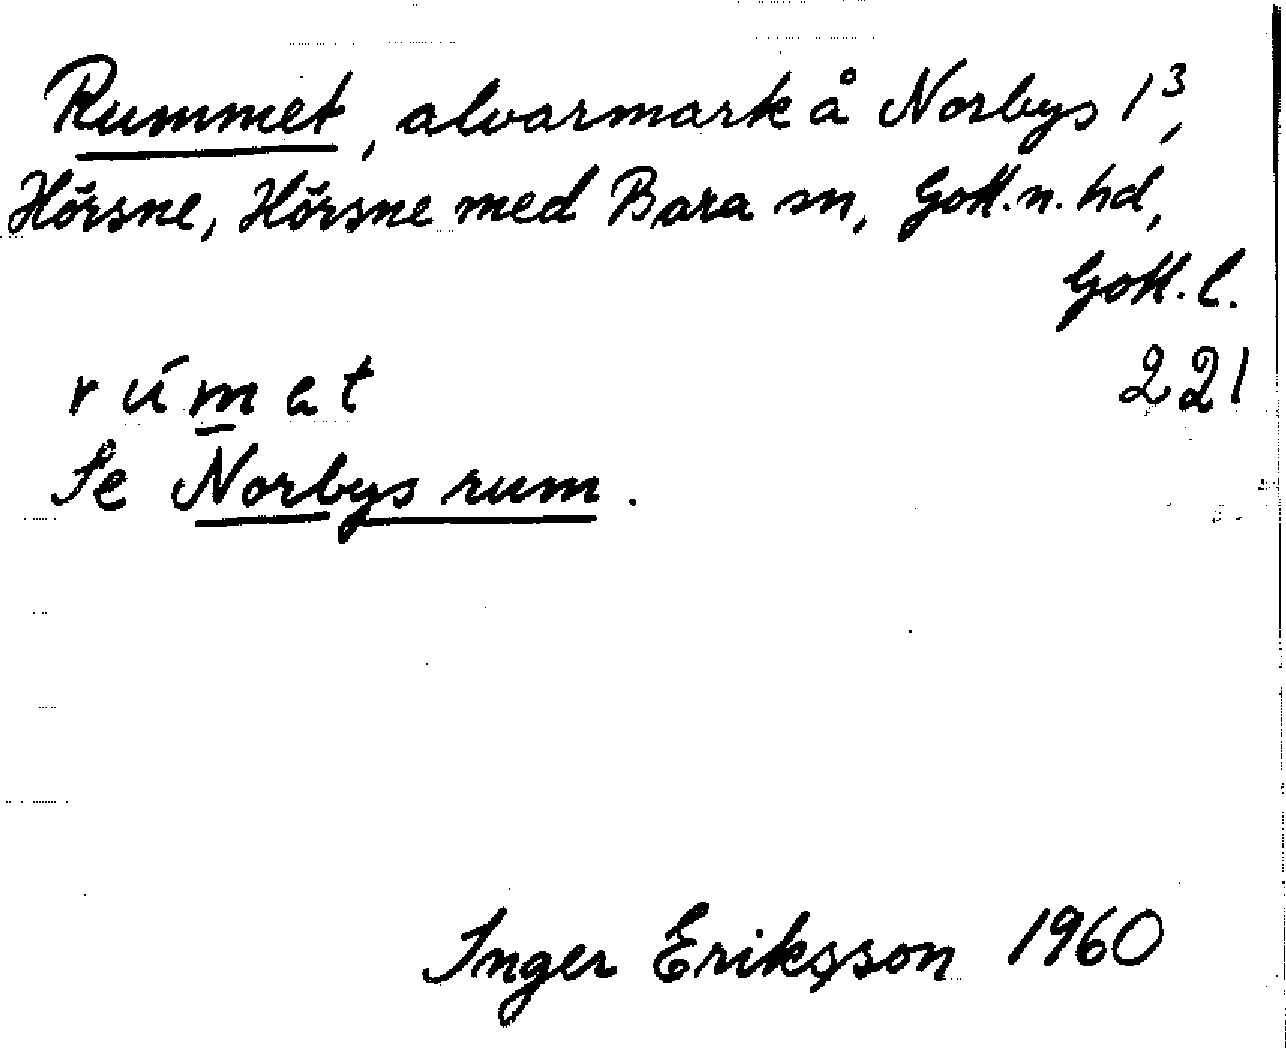 Rummet, alvarmark å Norbys 1³,
Hörsne, Hörsne med Bara sn, Gotl.n.hd,
Gotl.l.
rúmet 221
Se Norbys rum.
Inger Eriksson 1960